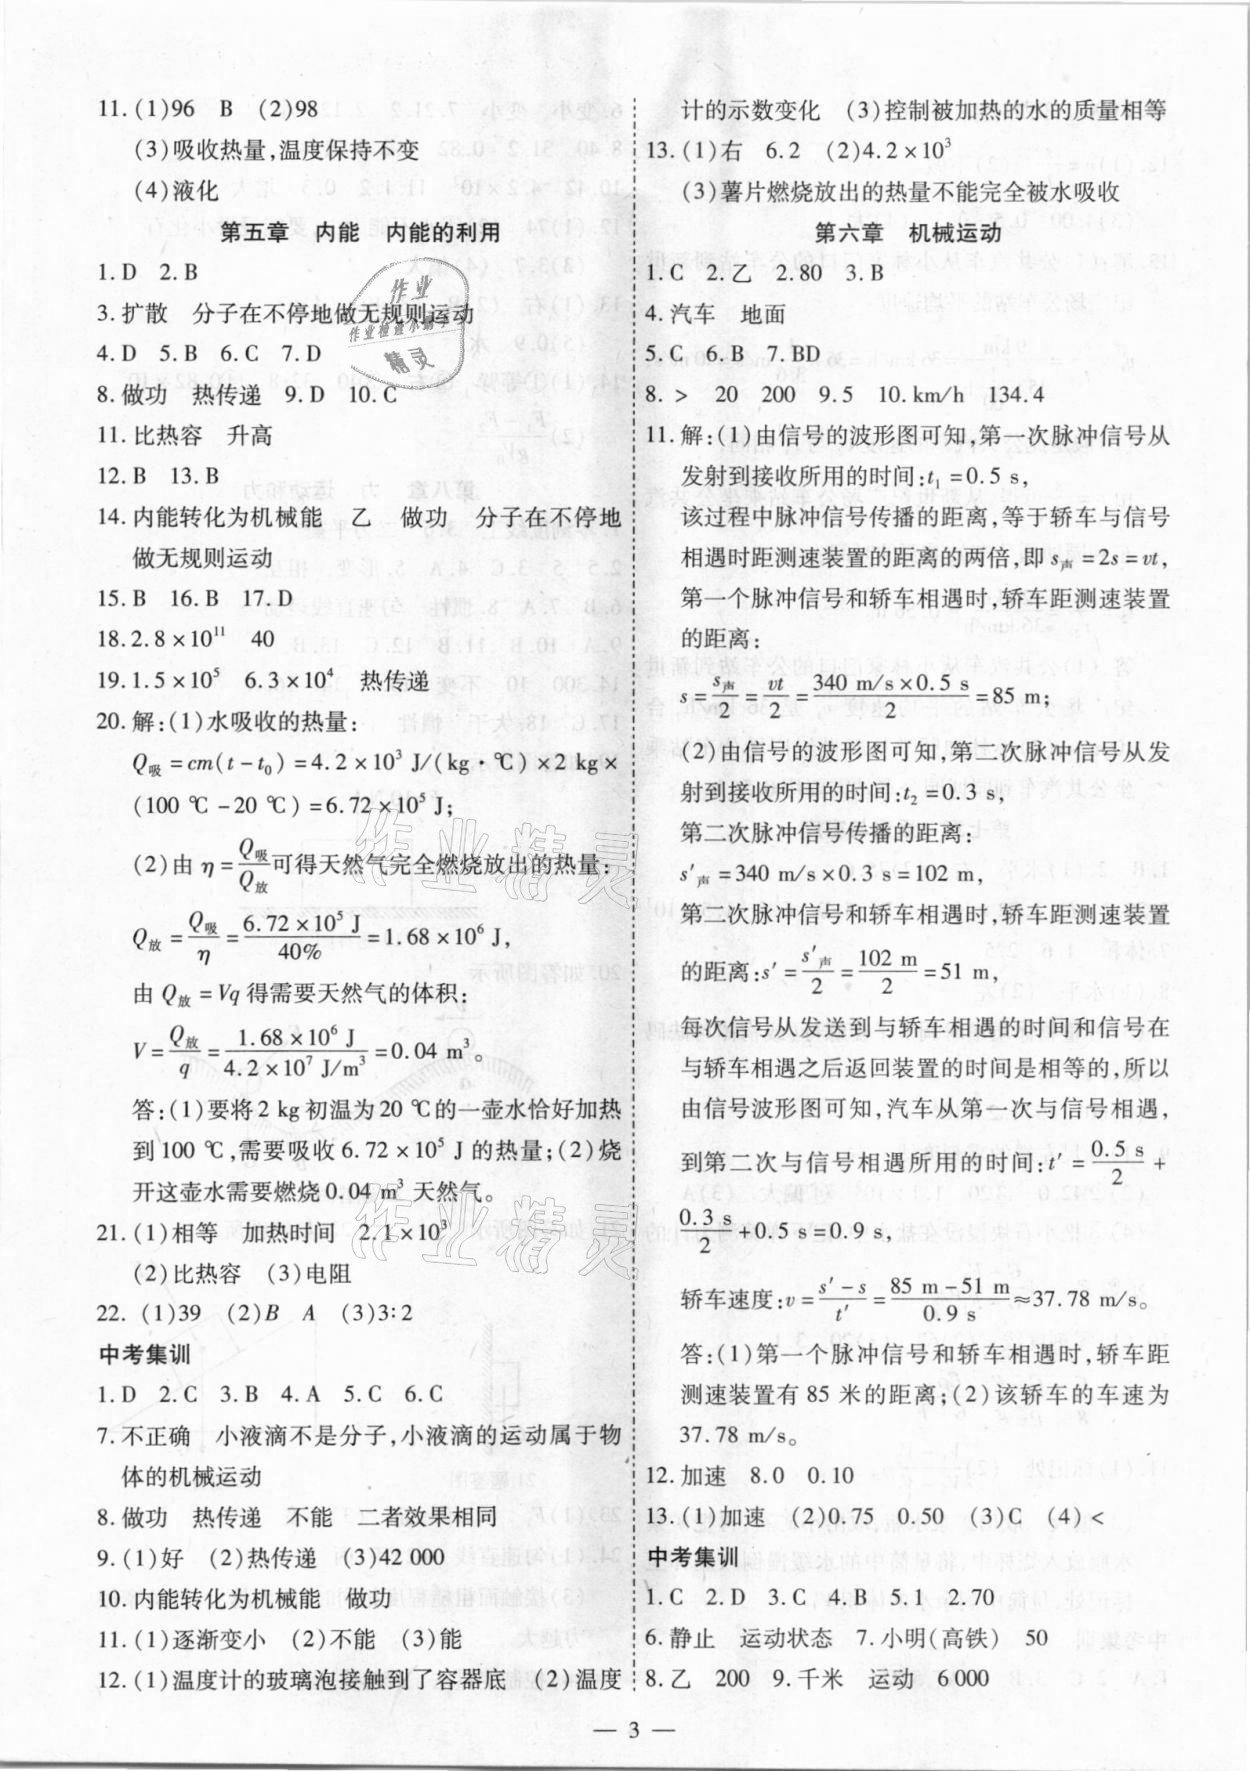 11. (1)96　B　(2)98
(3)吸收热量,温度保持不变
(4)液化
第五章　内能　内能的利用
1. D　2. B
3. 扩散　分子在不停地做无规则运动
4. D　5. B　6. C　7. D
8. 做功　热传递　9. D　10. C
11. 比热容　升高
12. B　13. B
14. 内能转化为机械能　乙　做功　分子在不停地
做无规则运动
15. B　16. B　17. D
18. 2.8×10¹¹　40
19. 1.5×10⁵　6.3×10⁴　热传递
20. 解:(1)水吸收的热量:
Q吸=cm(t-t₀)=4.2×10³ J/(kg·℃)×2 kg×
(100 ℃-20 ℃)=6.72×10⁵ J;
(2)由 η=Q吸/Q放 可得天然气完全燃烧放出的热量:
Q放=Q吸/η=6.72×10⁵ J/40%=1.68×10⁶ J,
由 Q放=Vq 得需要天然气的体积:
V=Q放/q=1.68×10⁶ J/4.2×10⁷ J/m³=0.04 m³。
答:(1)要将2 kg初温为20 ℃的一壶水恰好加热
到100 ℃,需要吸收6.72×10⁵ J的热量;(2)烧
开这壶水需要燃烧0.04 m³天然气。
21. (1)相等　加热时间　2.1×10³
(2)比热容　(3)电阻
22. (1)39　(2)B　A　(3)3:2
中考集训
1. D　2. C　3. B　4. A　5. C　6. C
7. 不正确　小液滴不是分子,小液滴的运动属于物
体的机械运动
8. 做功　热传递　不能　二者效果相同
9. (1)好　(2)热传递　(3)42 000
10. 内能转化为机械能　做功
11. (1)逐渐变小　(2)不能　(3)能
12. (1)温度计的玻璃泡接触到了容器底　(2)温度
计的示数变化　(3)控制被加热的水的质量相等
13. (1)右　6.2　(2)4.2×10³
(3)薯片燃烧放出的热量不能完全被水吸收
第六章　机械运动
1. C　2. 乙　2. 80　3. B
4. 汽车　地面
5. C　6. B　7. BD
8. >　20　200　9. 5　10. km/h　134.4
11. 解:(1)由信号的波形图可知,第一次脉冲信号从
发射到接收所用的时间:t₁=0.5 s,
该过程中脉冲信号传播的距离,等于轿车与信号
相遇时距测速装置的距离的两倍,即s声=2s=vt,
第一个脉冲信号和轿车相遇时,轿车距测速装置
的距离:
s=s声/2=vt/2=340 m/s×0.5 s/2=85 m;
(2)由信号的波形图可知,第二次脉冲信号从发
射到接收所用的时间:t₂=0.3 s,
第二次脉冲信号传播的距离:
s′声=340 m/s×0.3 s=102 m,
第二次脉冲信号和轿车相遇时,轿车距测速装置
的距离:s′=s′声/2=102 m/2=51 m,
每次信号从发送到与轿车相遇的时间和信号在
与轿车相遇之后返回装置的时间是相等的,所以
由信号波形图可知,汽车从第一次与信号相遇,
到第二次与信号相遇所用的时间:t′=0.5 s/2+
0.3 s/2+0.5 s=0.9 s,
轿车速度:v=s′-s/t′=85 m-51 m/0.9 s≈37.78 m/s。
答:(1)第一个脉冲信号和轿车相遇时,轿车距
测速装置有85米的距离;(2)该轿车的车速为
37.78 m/s。
12. 加速　8.0　0.10
13. (1)加速　(2)0.75　0.50　(3)C　(4)<
中考集训
1. C　2. D　3. C　4. B　5. 1　2.70
6. 静止　运动状态　7. 小明(高铁)　50
8. 乙　200　9. 千米　运动　6 000
— 3 —
作业精灵
作业精灵